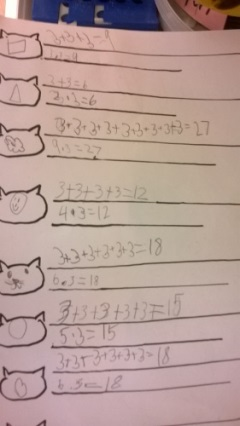 3+3+3=9
3+3=6
2•3=6
3+3+3+3+3+3+3+3+3=27
9•3=27
3+3+3+3=12
4•3=12
3+3+3+3+3+3=18
6•3=18
3+3+3+3+3=15
5•3=15
3+3+3+3+3+3=18
=18